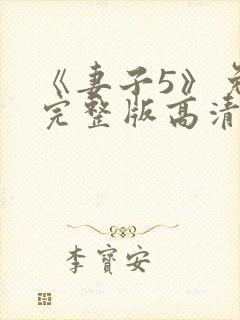 《妻子5》免
完整版高清
李寳安